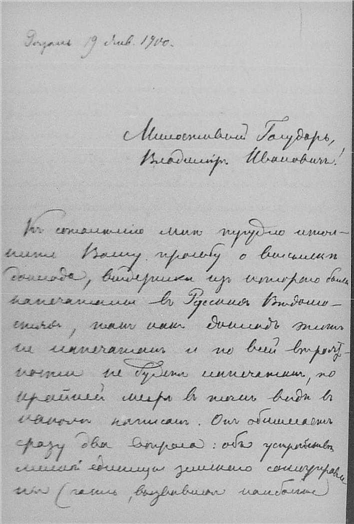 Рязань 19 Янв. 1900.
Милостивый Государь,
Владимiръ Ивановичъ!
Къ сожаленiю мнѣ трудно испол-
нить Вашу просьбу о высылкѣ
доклада, выдержки изъ котораго были
напечатаны въ Русскихъ Вѣдомо-
стяхъ, такъ какъ докладъ
не напечатанъ и по всей вѣроят-
ности не будетъ напечатанъ, по
крайней мѣрѣ въ томъ видѣ въ
написанъ. Онъ обнимаетъ
сразу два вопроса: объ устройствѣ
мелкой единицы земскаго самоуправле-
нiя (часть, вызвавшая наиболѣе